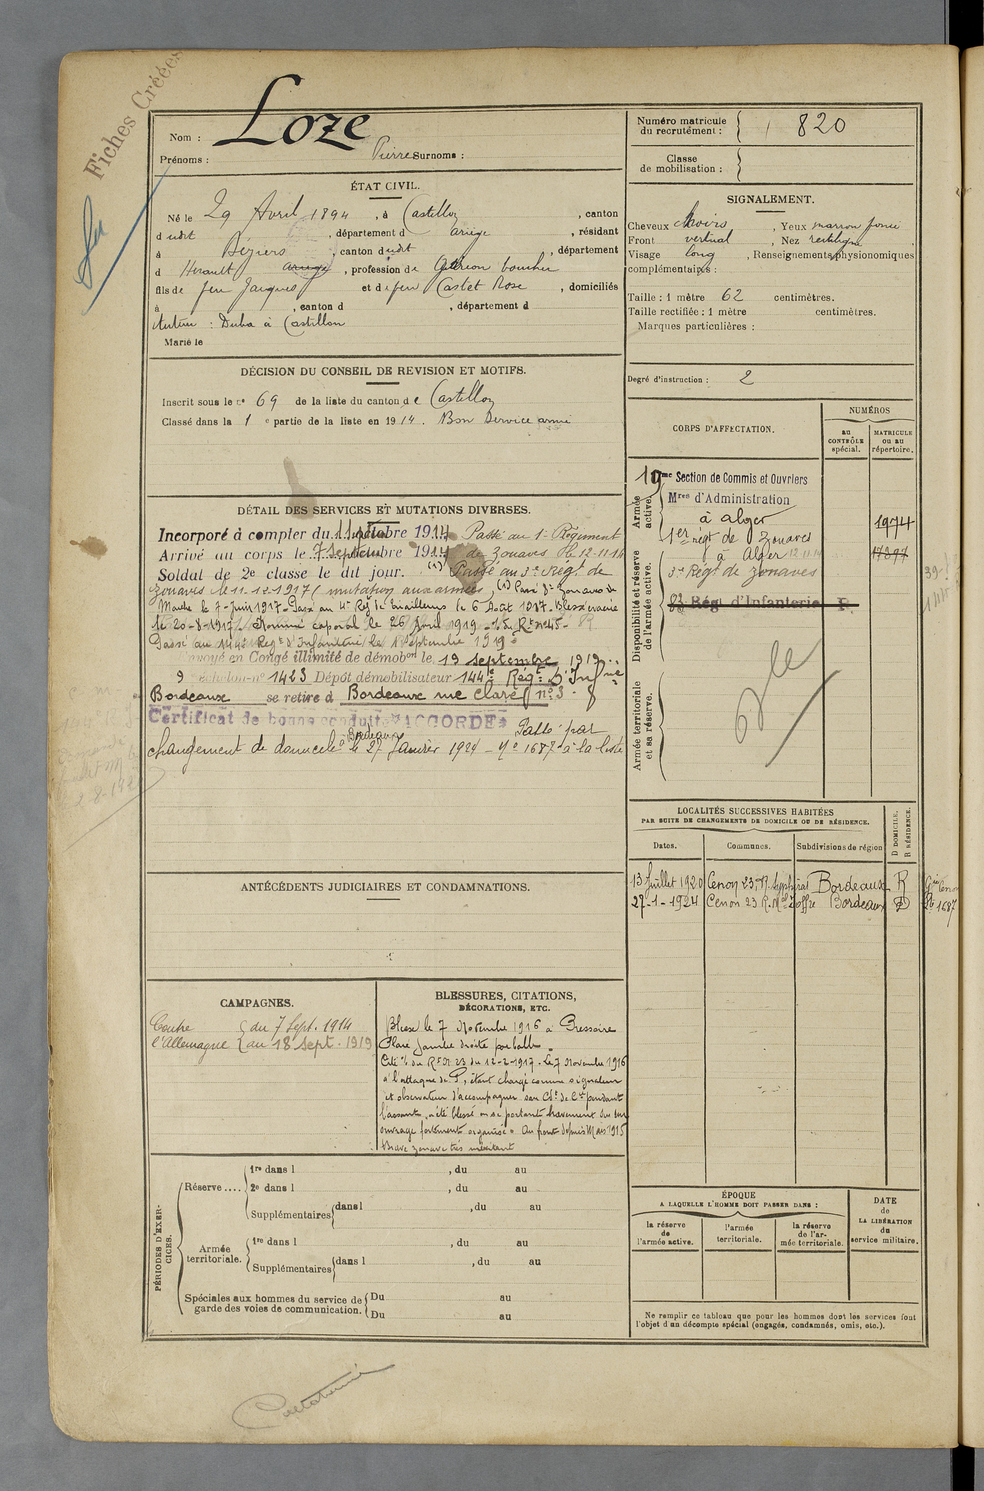 Fiches Créées
Nom : Loze
Prénoms : Pierre Surnoms :
Numéro matricule du recrutement : 820
Classe de mobilisation :
ÉTAT CIVIL.
Né le 29 Avril 1894, à Castillon, canton
dudit, département d ariège, résidant
à Béziers, canton dudit, département
d Hérault ariège, profession de Garçon boucher
fils de feu Jacques et de feu Castet Rose, domiciliés
à , canton d , département d
tuteur : Duba à Castillon
Marié le
SIGNALEMENT.
Cheveux Noirs, Yeux marron foncé
Front vertical, Nez rectiligne
Visage long, Renseignements physionomiques
complémentaires :
Taille : 1 mètre 62 centimètres.
Taille rectifiée : 1 mètre centimètres.
Marques particulières :
Degré d'instruction : 2
DÉCISION DU CONSEIL DE REVISION ET MOTIFS.
Inscrit sous le n° 69 de la liste du canton de Castillon
Classé dans la 1e partie de la liste en 1914. Bon Service armé
CORPS D'AFFECTATION.
NUMÉROS
au CONTRÔLE spécial.
MATRICULE ou au répertoire.
Armée active.
19me Section de Commis et Ouvriers
Mres d'Administration
à alger
1974
1er régt de Zouaves
à Alger 12-11-14
Disponibilité et réserve de l'armée active.
3e Régt de zouaves
Régt d'Infanterie
Armée territoriale et sa réserve.
DÉTAIL DES SERVICES ET MUTATIONS DIVERSES.
Incorporé à compter du 11 octobre 1914 Passé au 1er Régiment
Arrivé au corps le 7 Septembre 1914 de Zouaves le 12-11-14
Soldat de 2e classe le dit jour. (1) Passé au 3e Régt de
zouaves le 11-12-1917 (mutation aux armées) (1) Passé 3e Zouaves de
Marche le 7-Juin 1917. Passé au 4e Rég de tirailleurs le 6 Août 1917. Blessé
le 20-8-1917. Nommé caporal le 26 Avril 1919
Passé au 144e Regt d'Infanterie le 1 Septembre 1919
envoyé en Congé illimité de démobon le 19 septembre 1919
9 échelon n° 1423 Dépôt démobilisateur 144e Régt d'Infrie
Bordeaux se retire à Bordeaux rue Claré n° 3
Certificat de bonne conduite "ACCORDÉ"
Passé par
changement de domicile à Bordeaux le 27 Janvier 1924 - N° 1687 à la liste
LOCALITÉS SUCCESSIVES HABITÉES
PAR SUITE DE CHANGEMENTS DE DOMICILE OU DE RÉSIDENCE.
Dates. Communes. Subdivisions de région D DOMICILE. R RÉSIDENCE.
13 Juillet 1920 Cenon 23 R. Bordeaux R
27-1-1924 Cenon 23 R. Mal Joffre Bordeaux D
1687
ANTÉCÉDENTS JUDICIAIRES ET CONDAMNATIONS.
CAMPAGNES.
Contre du 7 Sept. 1914
l'Allemagne au 18 Sept. 1919
BLESSURES, CITATIONS, DÉCORATIONS, ETC.
Blessé le 7 Novembre 1916 à Pressoire
Plaie jambe droite par balle.
Cité O. du R. N° 23 du 12-2-1917. Le 7 Novembre 1916
à l'attaque de P., étant chargé comme signaleur
et observateur d'accompagner son Cdt de Cie pendant
l'assaut, a été blessé en se portant bravement sur un
ouvrage fortement organisé. Au front depuis Mars 1915
Brave zouave très méritant
PÉRIODES D'EXERCICES.
Réserve.... 1re dans l , du au
2e dans l , du au
Supplémentaires dans l , du au
Armée territoriale. 1re dans l , du au
Supplémentaires dans l , du au
Spéciales aux hommes du service de garde des voies de communication. Du au
Du au
ÉPOQUE
A LAQUELLE L'HOMME DOIT PASSER DANS :
la réserve de l'armée active.
l'armée territoriale.
la réserve de l'armée territoriale.
DATE de LA LIBÉRATION du service militaire.
Ne remplir ce tableau que pour les hommes dont les services font
l'objet d'un décompte spécial (engagés, condamnés, omis, etc.).